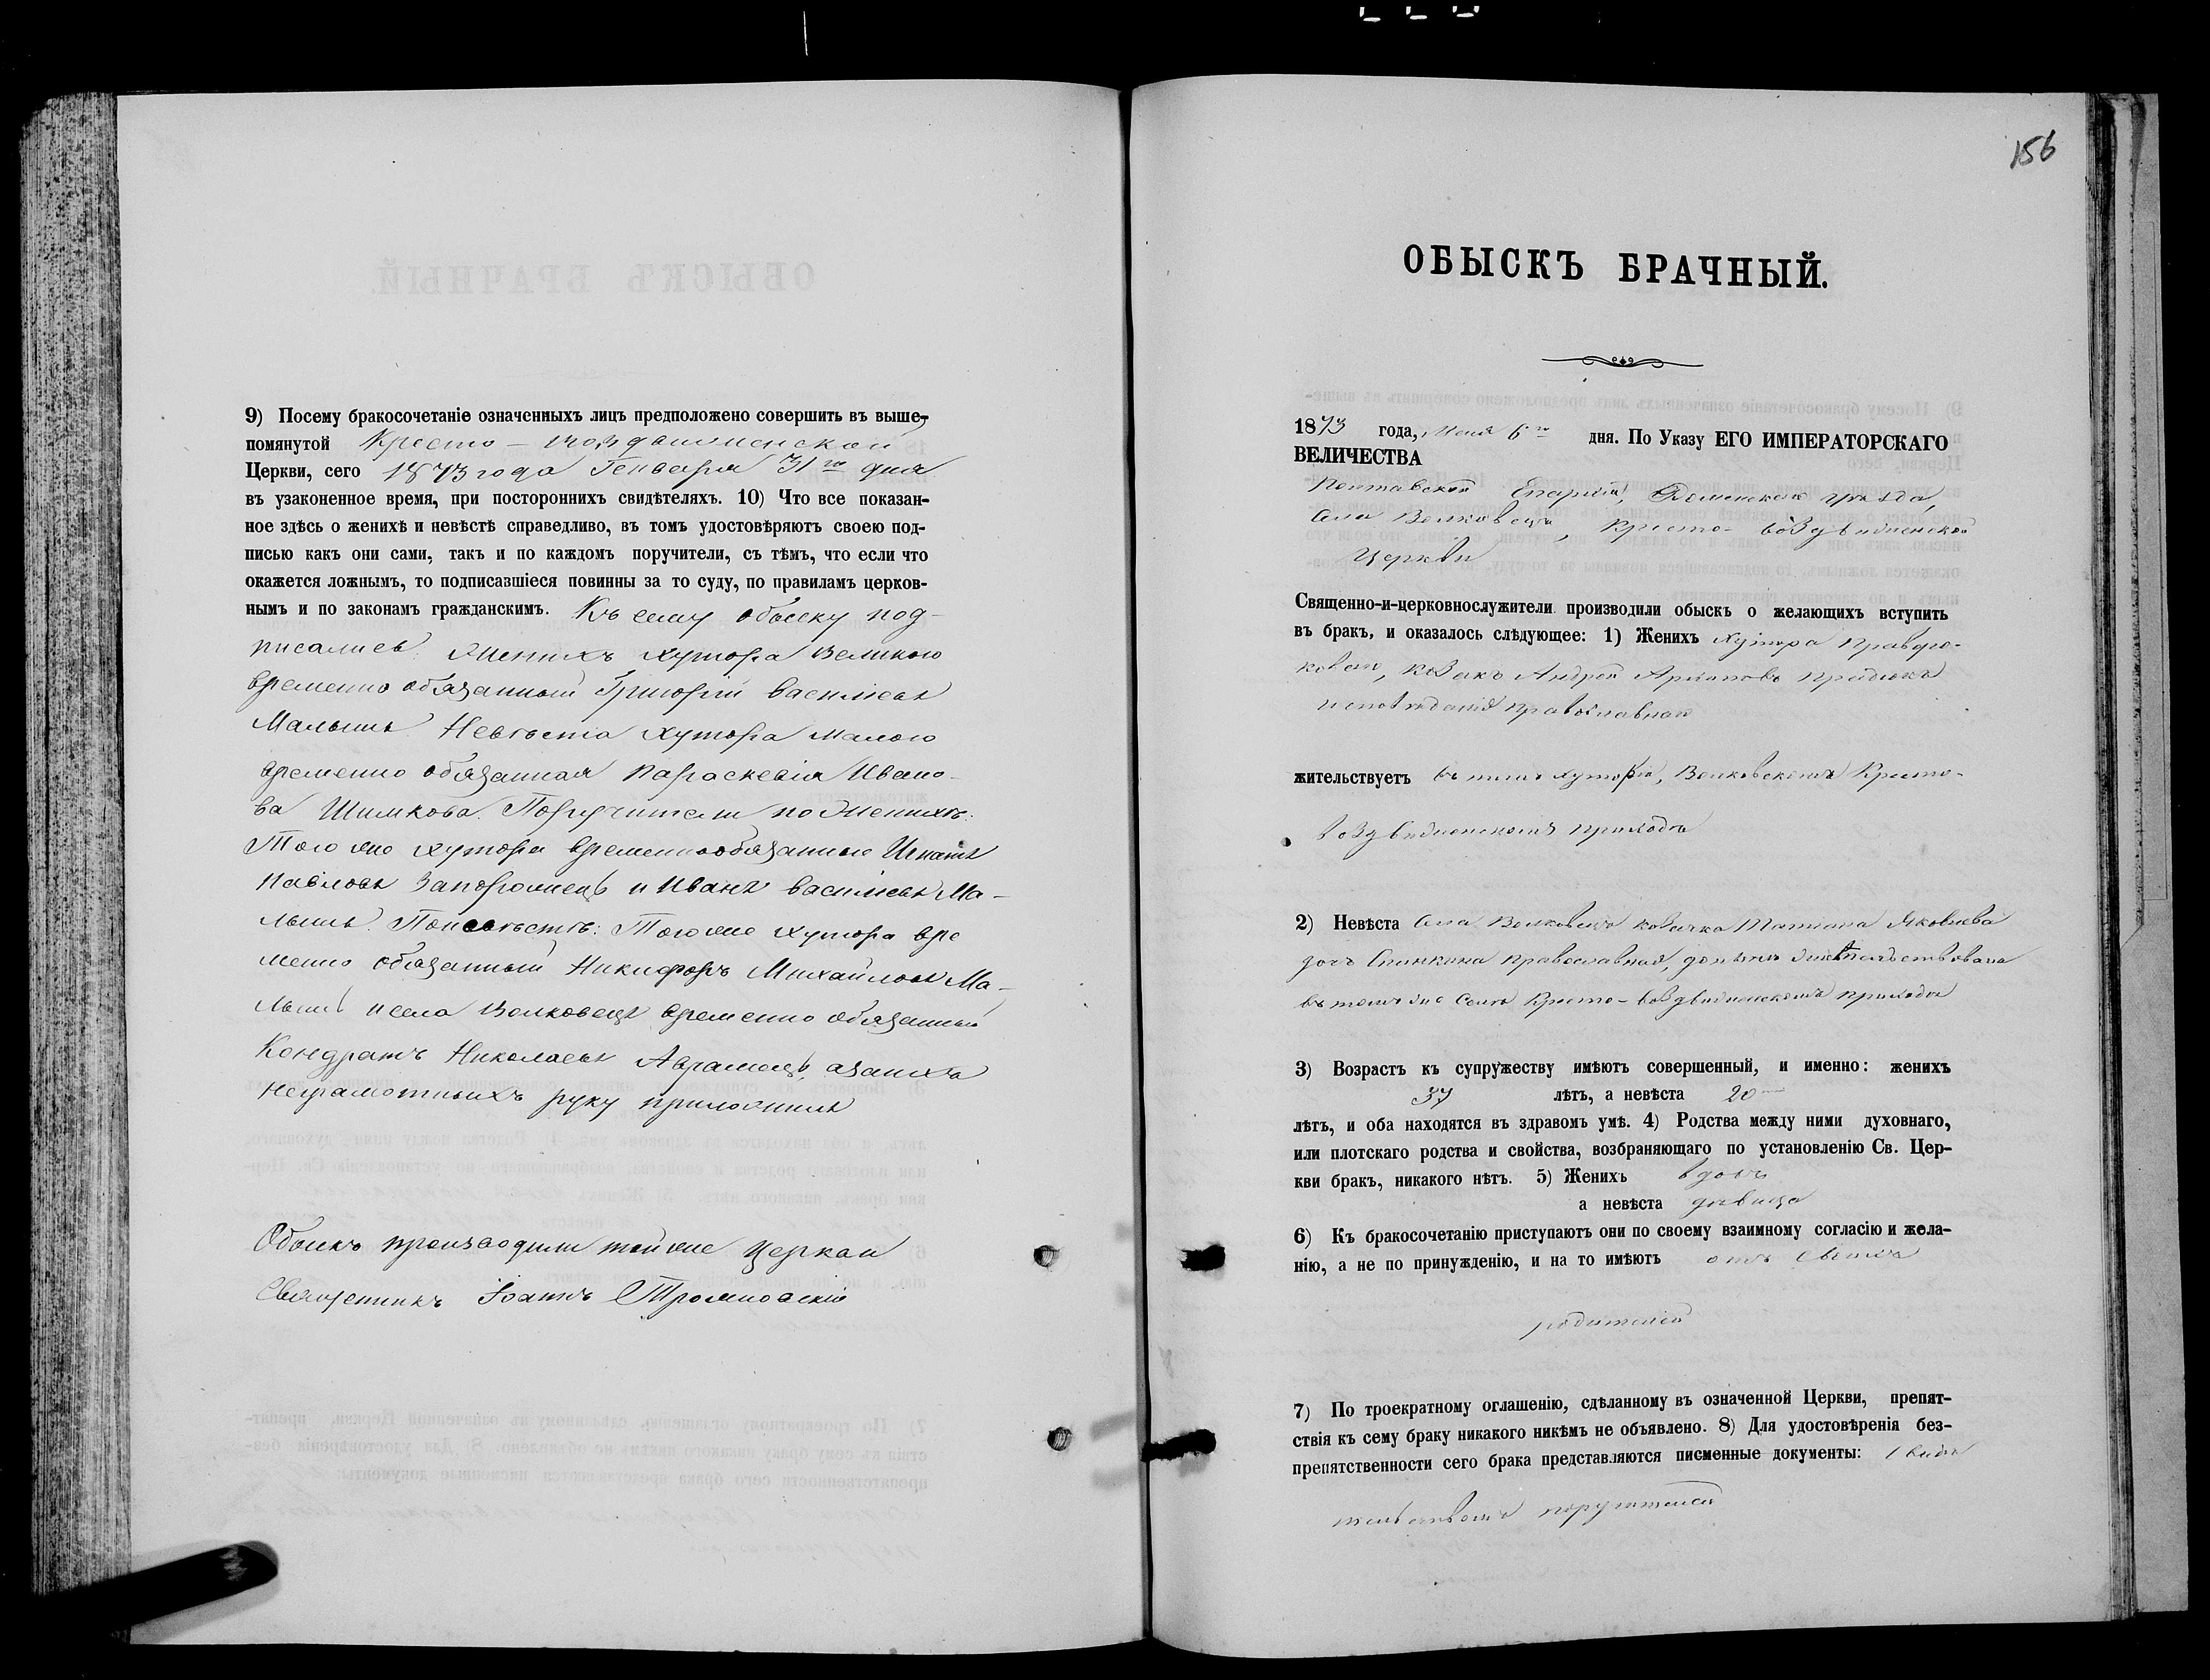 9) Посему бракосочетаніе означенныхъ лицъ предположено совершить въ выше-
помянутой Кресто-
Церкви, сего 1873 года Генваря 31го дня
въ узаконенное время, при постороннихъ свидѣтеляхъ. 10) Что все показан-
ное здѣсь о женихѣ и невѣстѣ справедливо, въ томъ удостовѣряютъ своею под-
писью какъ они сами, такъ и по каждомъ поручители, съ тѣмъ, что если что
окажется ложнымъ, то подписавшіеся повинны за то суду, по правиламъ церков-
нымъ и по законамъ гражданскимъ. Къ сему обыску под-
писались: Женихъ хутора Великого
временно обязанный Григорій Васильевъ
Малышъ Невѣста хутора Малого
временно обязанная Параскевія Ивано-
ва Шимкова. Поручители по женихѣ:
Того же хутора временнообязанные Игнатъ
Павловъ Запорожецъ и Иванъ Васильевъ Ма-
лышъ. По невѣстѣ: Того же хутора вре
менно обязанный Никифоръ Михайловъ Ма-
лышъ и села Волковецъ временно обязанный
Кондратъ Николаевъ Аврамецъ, а за нихъ
неграмотныхъ руку приложилъ
Обыскъ производили той же церкви
Священникъ Іоаннъ
156
ОБЫСКЪ БРАЧНЫЙ.
1873 года, 6го дня. По Указу ЕГО ИМПЕРАТОРСКАГО
ВЕЛИЧЕСТВА
Полтавской Епархіи, Роменскаго уѣзда,
Села Волковецъ, Кресто-воздвиженской
Церкви
Священно-и-церковнослужители производили обыскъ о желающихъ вступить
въ бракъ, и оказалось слѣдующее: 1) Женихъ хутора
козакъ Андрей
исповѣданія православнаго
жительствуетъ въ томъ хуторѣ, Волковскомъ Кресто-
воздвиженскомъ приходѣ
2) Невѣста Села Волковецъ козачка Татіана Яковлева
дочь православная, до нынѣ жительствовала
въ томъ же селѣ Кресто-воздвиженскомъ приходѣ
3) Возрастъ къ супружеству имѣютъ совершенный, и именно: женихъ
37 лѣтъ, а невѣста 20
лѣтъ, и оба находятся въ здравомъ умѣ. 4) Родства между ними духовнаго,
или плотскаго родства и свойства, возбраняющаго по установленію Св. Цер-
кви бракъ, никакого нѣтъ. 5) Женихъ вдовъ
а невѣста дѣвица
6) Къ бракосочетанію приступаютъ они по своему взаимному согласію и жела-
нію, а не по принужденію, и на то имѣютъ отъ своихъ
родителей
7) По троекратному оглашенію, сдѣланному въ означенной Церкви, препят-
ствія къ сему браку никакого никѣмъ не объявлено. 8) Для удостовѣренія без-
препятственности сего брака представляются писменные документы:
поручителей